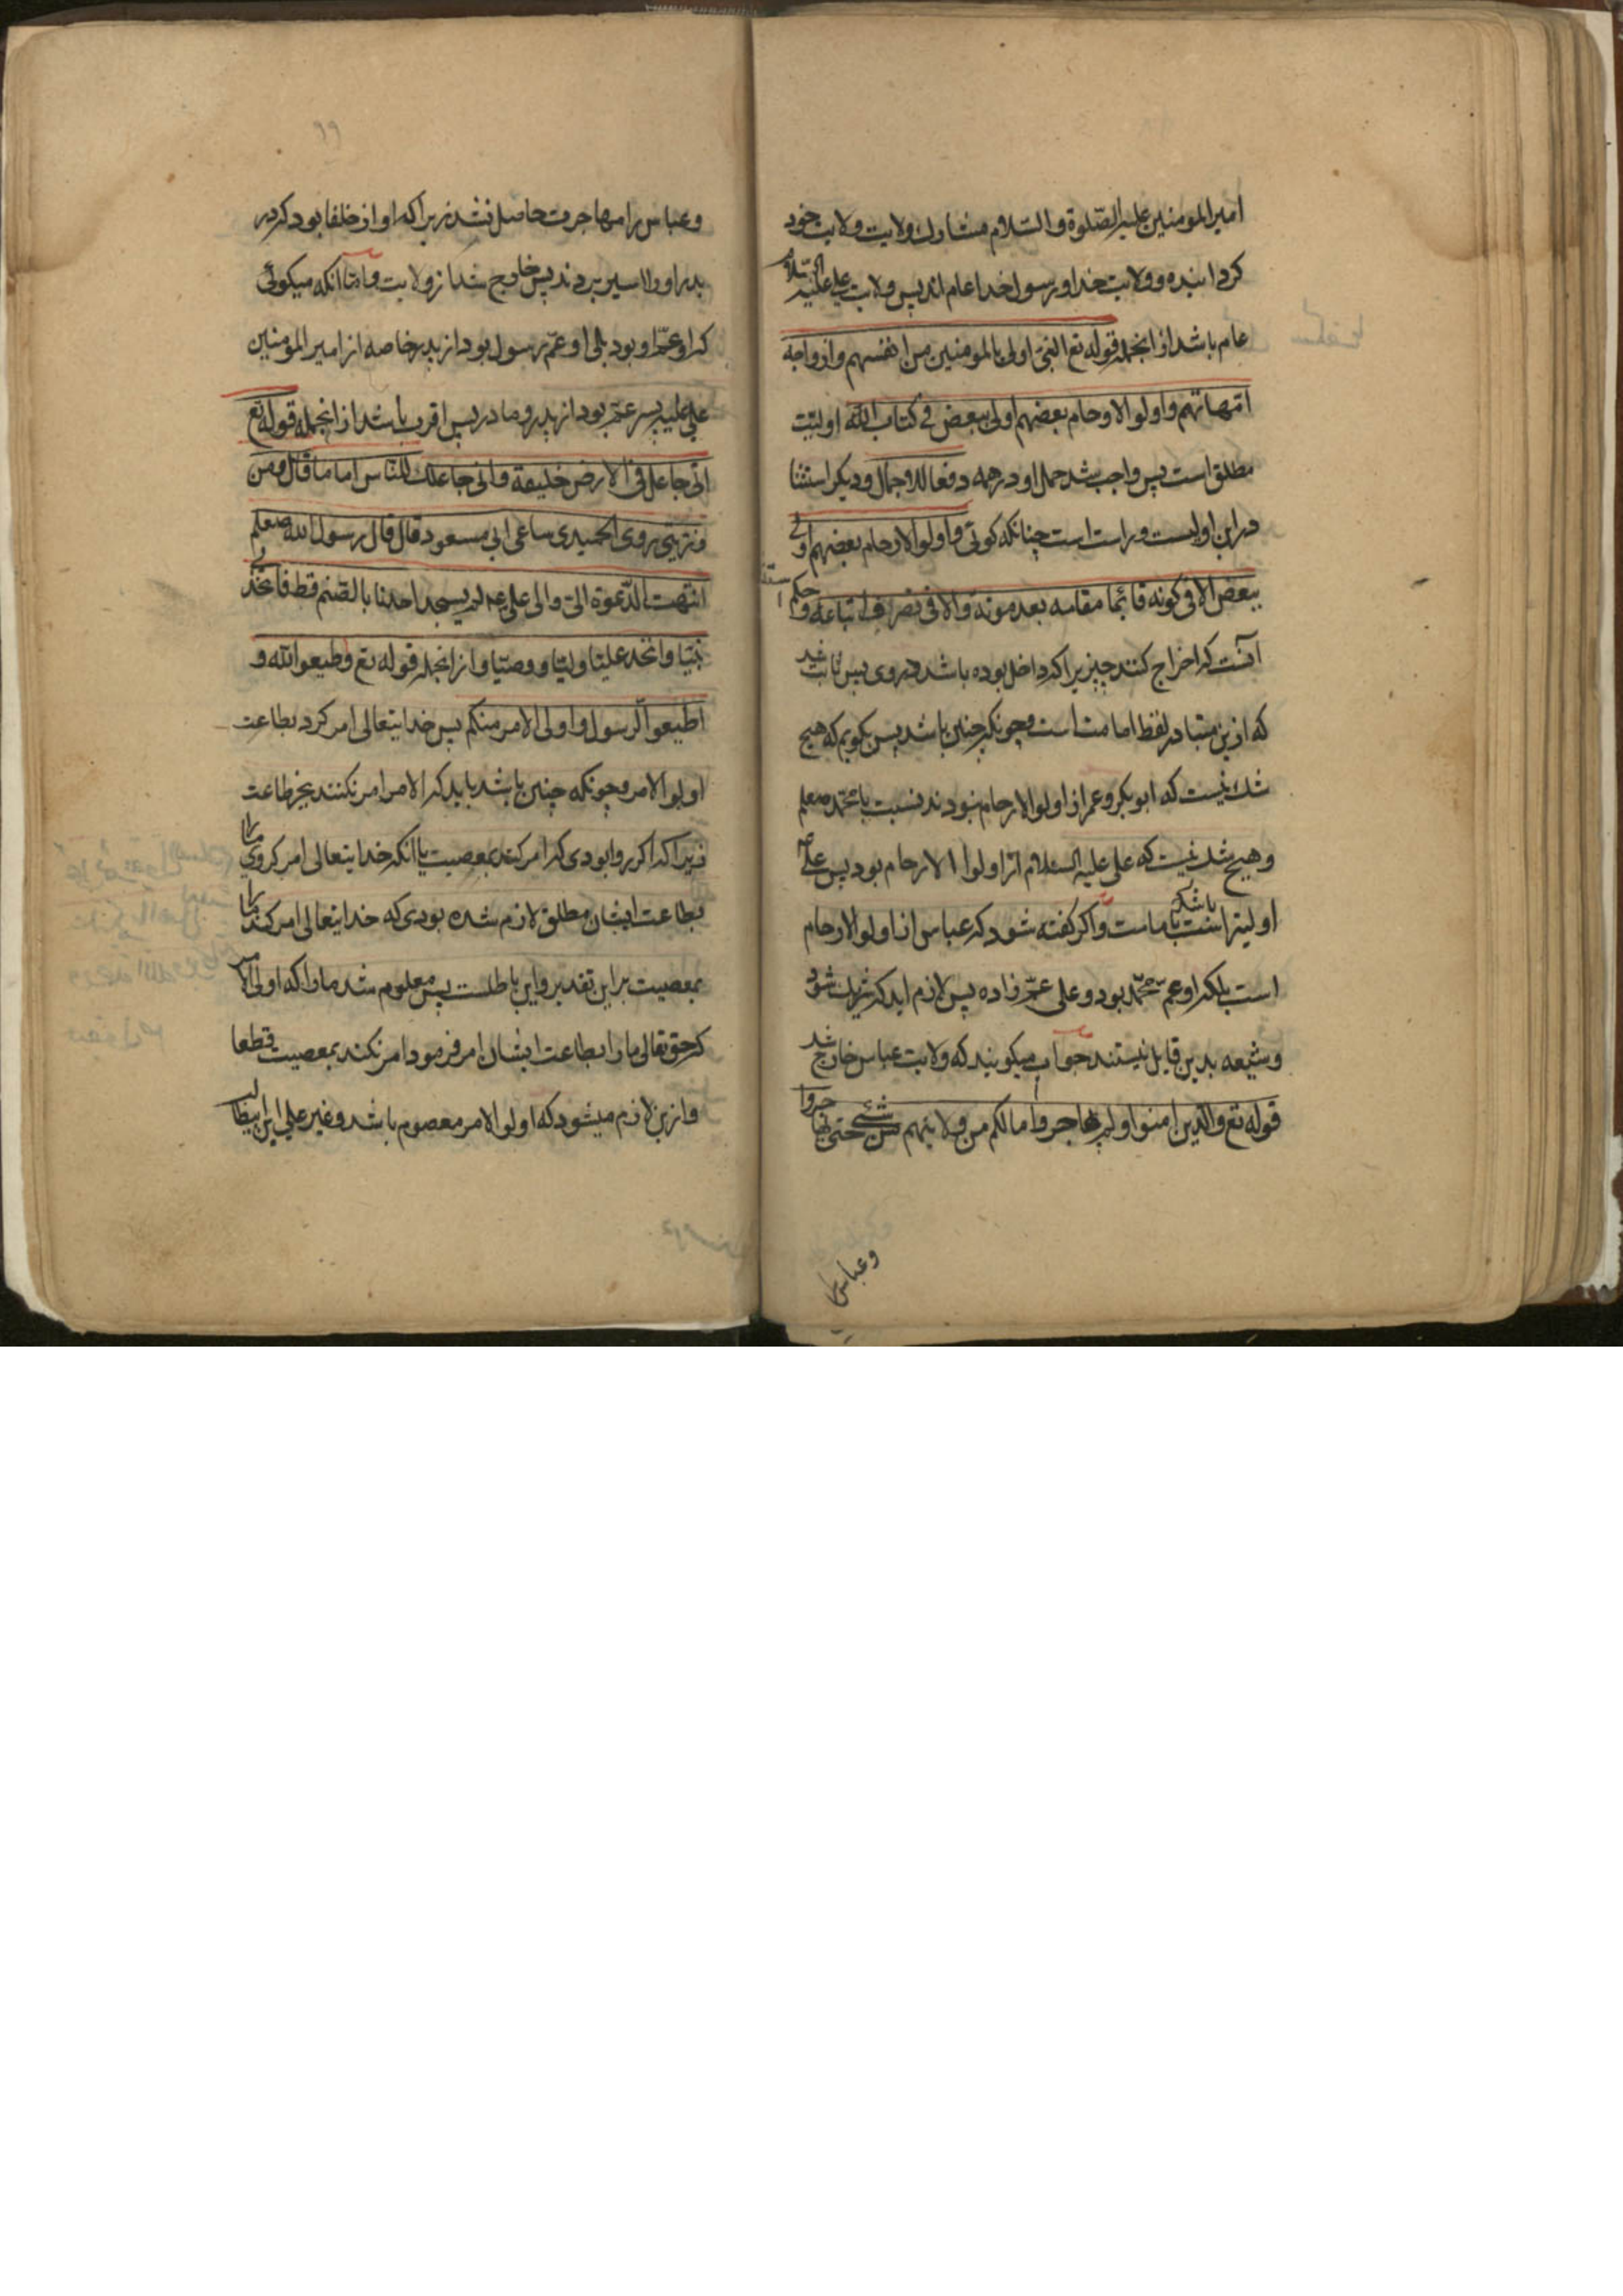 امیرالمومنین علیه الصّلوة والسّلام مشارك ولایت ولایت خود
کردانیده وولایت خدا ورسول خدا عام اند پس ولایت علی علیه السّلام
عام باشد از انجمله قوله تع النبیّ اولی بالمومنین من انفسهم وازواجه
امّهاتهم واولوا الارحام بعضهم اولی ببعض فی کتاب الله اولیّت
مطلق است پس واجب شد حمل او در همه دفعا للاجمال ودیکر استثنا
در این اولیست وراست است چنانکه کوئی واولوا الارحام بعضهم اولی
ببعض الا فی کونه قائما مقامه بعد موته والا فی تصرف اتباعه وحکم استثنا
آنست که اخراج کند چیزیرا که داخل بوده باشد دروی پس ثابت شد
که ازین متبادر لفظ امامت است وچونکه چنین باشد پس بکویم که هیچ
شك نیست که ابوبکر وعمر از اولوا الارحام نبودند نسبت با محمّد صعلم
وهیچ شك نیست که علی علیه السلام از اولوا الارحام بود پس علی
اولیتر است بامامت واکر کفته شود که عباس از اولوا الارحام
است بلکه او عمّ محمّد بود وعلی عمّ زاده پس لازم اید که شریك شود
وشیعه بدین قایل نیستند جواب میکویند که ولایت عباس خارج شد
قوله تع والذین امنوا ولم یهاجروا مالکم من ولایتهم من شئ حتی یهاجروا
وعباس را
وعباس را مهاجرت حاصل نشد زیرا که او از خلفا بود که در
بدر اورا اسیر بردند پس خارج شد از ولایت وامّا انکه میکوئی
که او عمّ او بود بلی او عمّ رسول بود از پدر خاصه از امیرالمومنین
علی علیه پسر عمّ بود از پدر ومادر پس اقرب باشد از انجمله قوله تع
انّی جاعل فی الارض خلیفة وانی جاعلك للنّاس اماما قال ومن
ذرّیّتی روی الحمیدی ساعی ابی مسعود قال قال رسول الله صعلم
انتهت الدّعوة الیّ والی علی لم یسجد احدنا بالصّنم قط فاتّخذنی
نبیّا واتخذ علیّا ولیّا ووصیّا واز انجمله قوله تع واطیعوا الله و
اطیعوا الرسول واولی الامر منکم پس خدایتعالی امر کرد بطاعت
اولوا الامر وچونکه چنین باشد باید که الامر امر نکنند بجز طاعت
زیرا که اکر روا بودی که امر کنند بمعصیت با انکه خدایتعالی امر کردی مارا
بطاعت ایشان مطلق لازم شده بودی که خدایتعالی امر کند مارا
بمعصیت براین تقدیر واین باطلست پس معلوم شد مارا که اولی الامر
که حق تعالی مارا بطاعت ایشان امر فرمود امر نکند بمعصیت قطعا
وازین لازم میشود که اولوا الامر معصوم باشد وغیر علی این